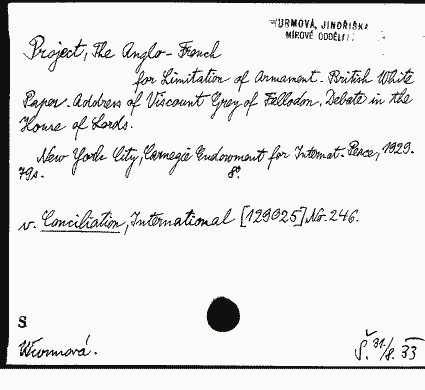 WURMOVÁ, JINDŘIŠKA
MÍROVÉ ODDĚL
Project, The Anglo-French
for Limitation of Armament. British White
Paper. Address of Viscount Grey of Fallodon. Debate in the
House of Lords.
New York City, Carnegie Endowment for Internat. Peace, 1929.
79s. 8°.
v. Conciliation, International [129025] No. 246.
S
Wurmová.
Š. 31./8. 33